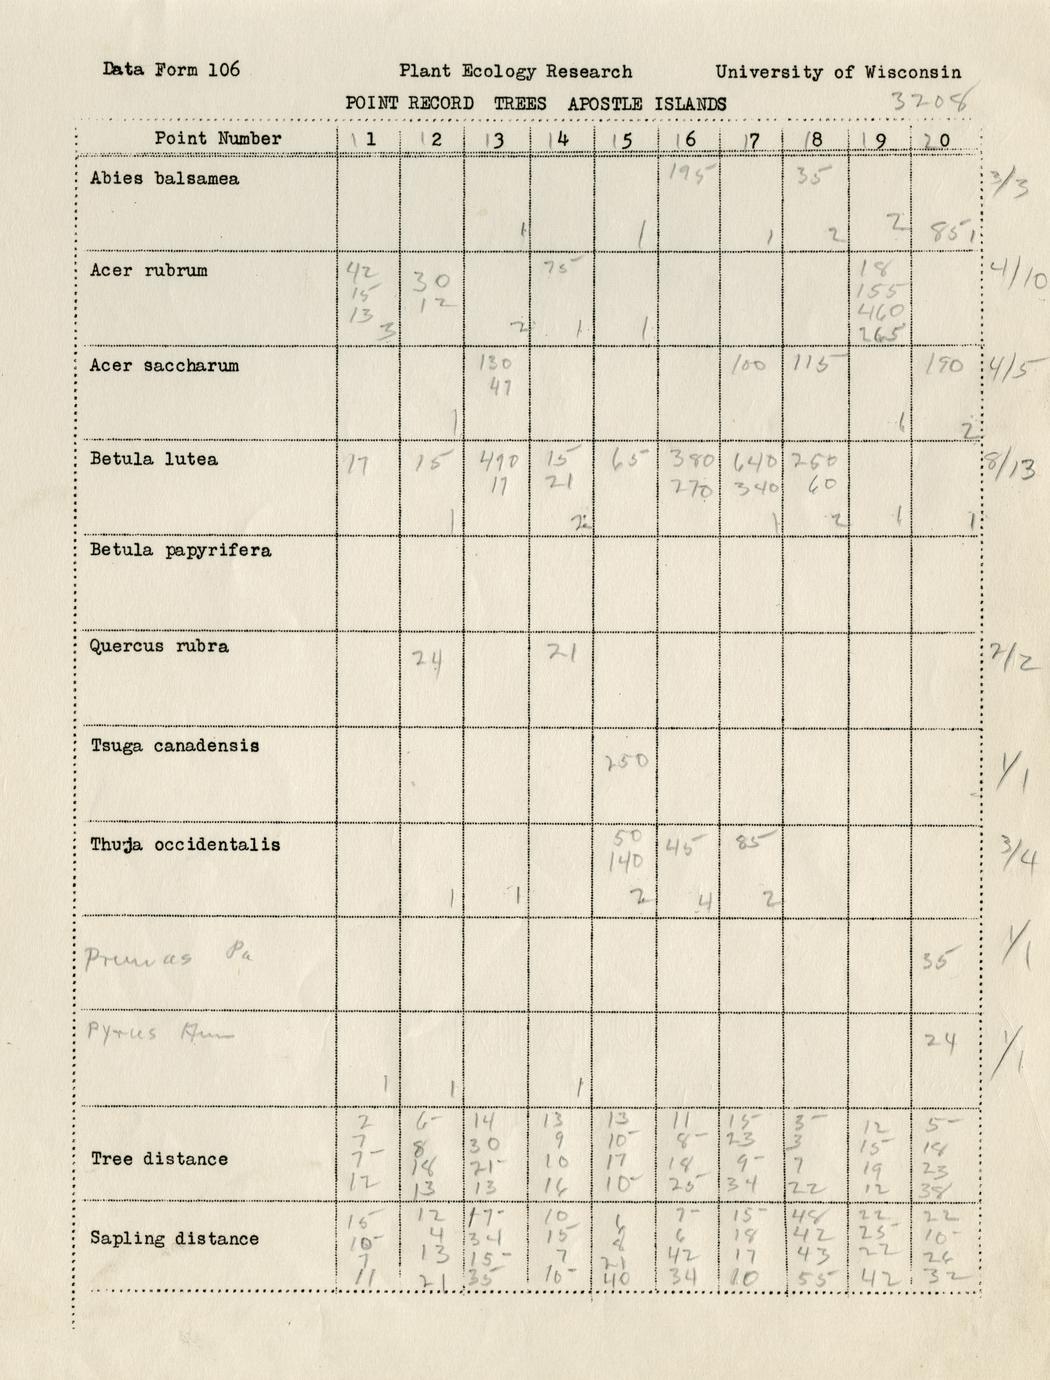 Data Form 106 Plant Ecology Research University of Wisconsin
POINT RECORD TREES APOSTLE ISLANDS 3208
Point Number 11 12 13 14 15 16 17 18 19 20
Abies balsamea 195 35 3/3
1 1 1 2 2 85 1
Acer rubrum 42 30 75 18 4/10
15 12 155
13 460
3 2 1 1 265
Acer saccharum 130 100 115 190 4/5
47
1 1 2
Betula lutea 17 15 490 15 65 380 640 250 8/13
17 21 270 340 60
1 2 1 2 1 1
Betula papyrifera
Quercus rubra 24 21 2/2
Tsuga canadensis 250 1/1
Thuja occidentalis 50 45 85 3/4
140
1 1 2 4 2
Prunus Pa 35 1/1
Pyrus Am 24 1/1
1 1 1
2 6 14 13 13 11 15 3 12 5
7 8 30 9 10 8 23 3 15 18
Tree distance 7 18 21 10 17 18 9 7 19 23
12 13 13 16 10 25 34 22 12 38
15 12 17 10 7 15 48 22 22
Sapling distance 10 4 34 15 8 6 18 42 25 10
7 13 15 7 21 42 17 43 22 26
11 21 35 10 40 34 10 55 42 32